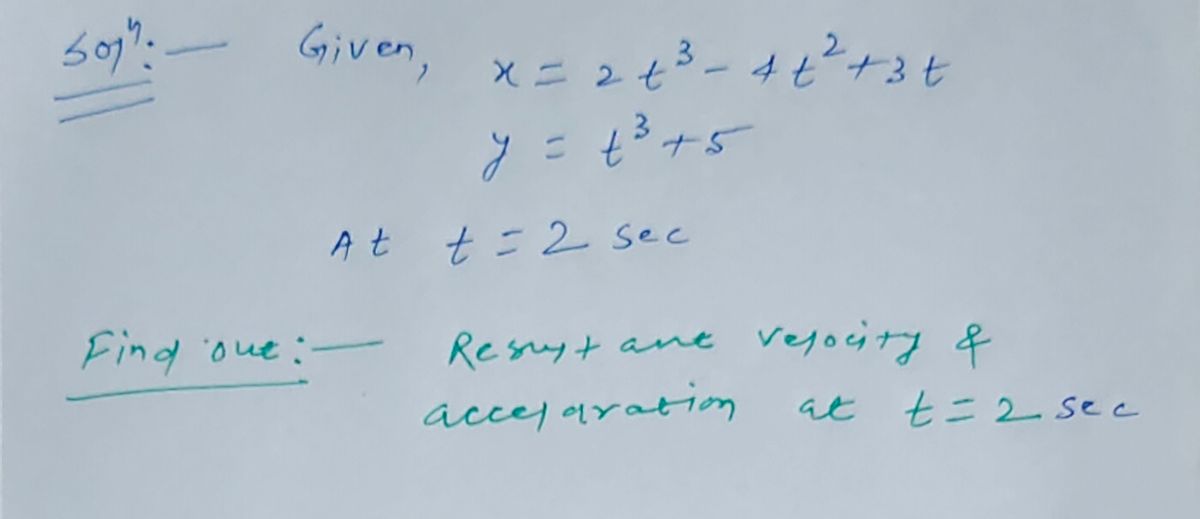 Solⁿ:— Given, x = 2t³ - 4t² + 3t
y = t³ + 5
At t = 2 sec
Find out:— Resultant velocity &
accelaration at t = 2 sec